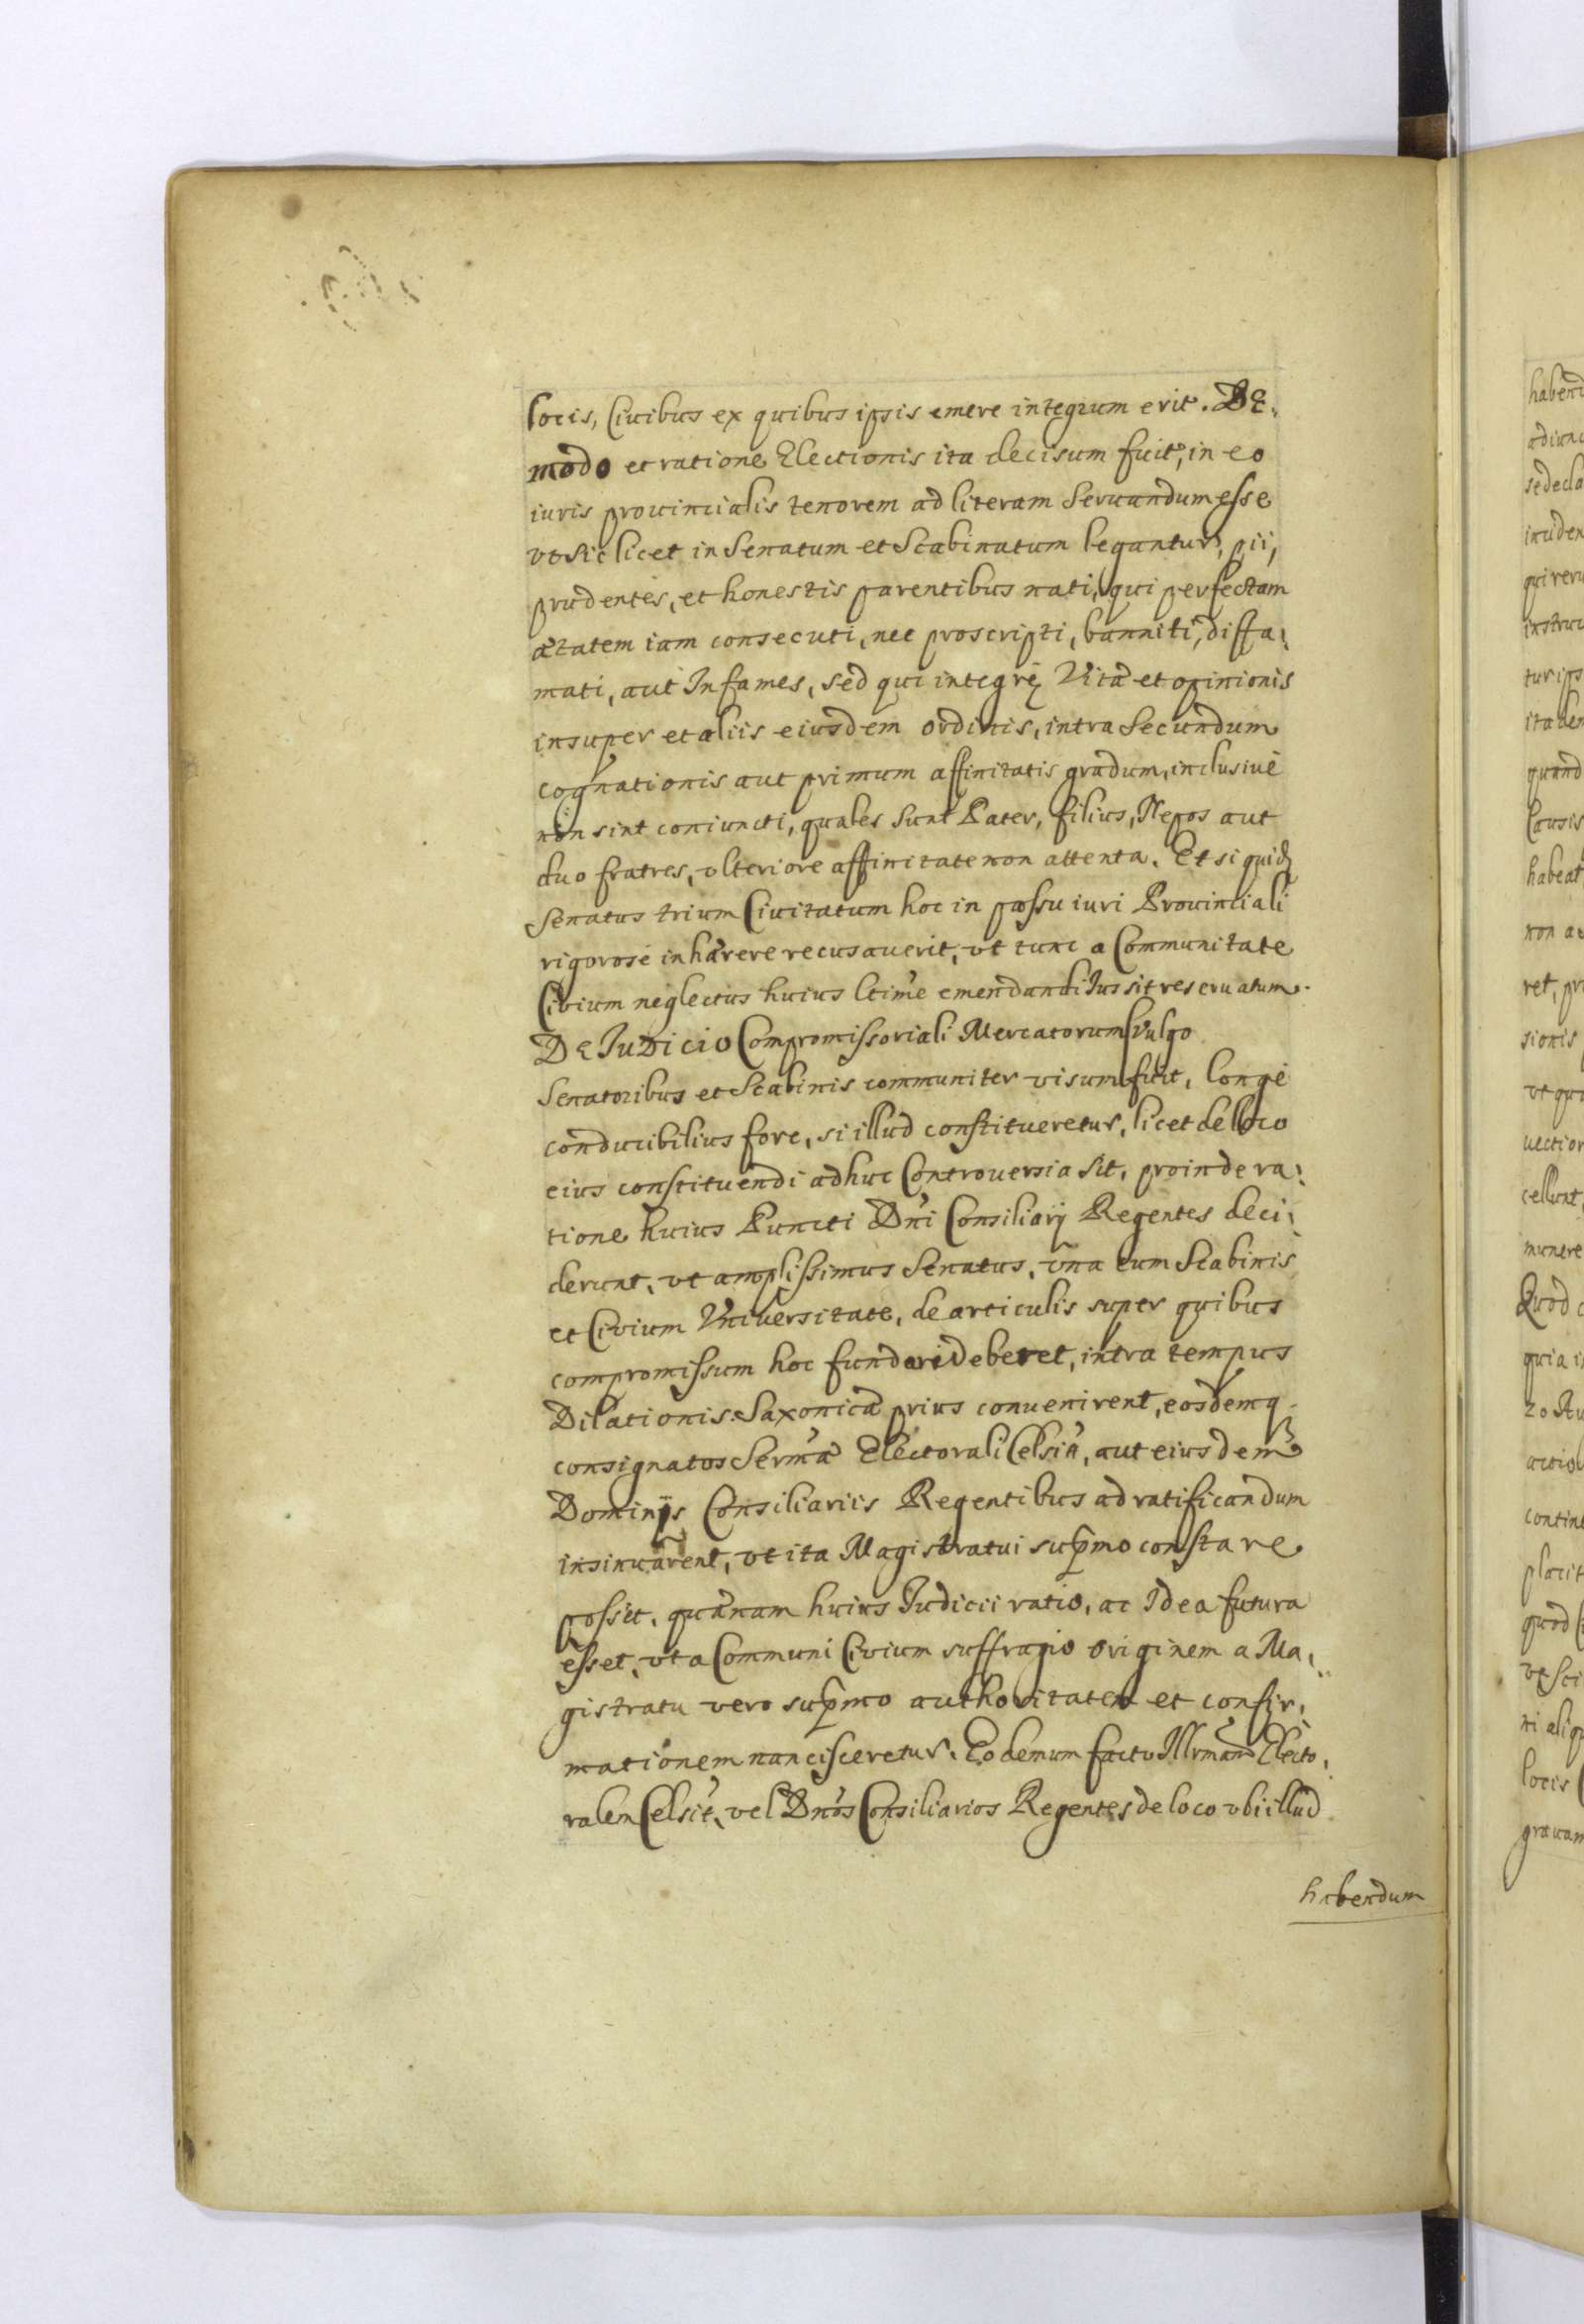 locis, Civibus ex quibus ipsis emere integrum erit. De
modo et ratione Electionis ita decisum fuit, in eo
iuris provincialis tenorem ad literam Servandum esse
vt Sic licet in Senatum et Scabinatum legantur, pii,
prudentes, et honestis parentibus nati, qui perfectam
ætatem iam consecuti, nec proscripti, banniti, diffa:
mati, aut Infames, sed qui integrę Vitæ et opinionis
insuper et aliis eiusdem ordinis, intra Secundum
cognationis aut primum affinitatis gradum, inclusivè
non sint coniuncti, quales Sunt Pater, filius, Nepos aut
duo fratres, vlteriore affinitate non attenta. Et si quidē
Senatus trium Civitatum hoc in passu iuri Provinciali
rigorosè inhærere recusaverit, vt tunc a Communitate
Civium neglectus huius ltime emendandi Ius sit reservatum.
De Iudicio Compromissoriali Mercatorum Vulgo
Senatoribus et Scabinis communiter visum fuit, longè
conducibilius fore, si illud constitueretur, licet de loco
eius constituendi adhuc Controversia Sit, proinde ra:
tione huius Puncti Dni Consiliarij Regentes deci:
derunt, vt amplissimus Senatus, vna cum Scabinis
et Civium Vniversitate, de articulis super quibus
compromissum hoc fundari deberet, intra tempus
Dilationis Saxonicæ prius convenirent, eosdemq
consignatos Sermæ Electorali Celsni, aut eiusdem
Dominijs Consiliariis Regentibus ad ratificandum
insinuarent, vt ita Magistratui supmo constare
possit, quænam huius Iudicii ratio, ac Idea futura
esset, vt a Communi Civium suffragio originem a Ma:
gistratu vero supmo authoritatem et confir:
mationem nancisceretur. Eo demum facto Illrmam Electo:
ralem Celsit, vel Dnos Consiliarios Regentes de loco vbi illud
habendum